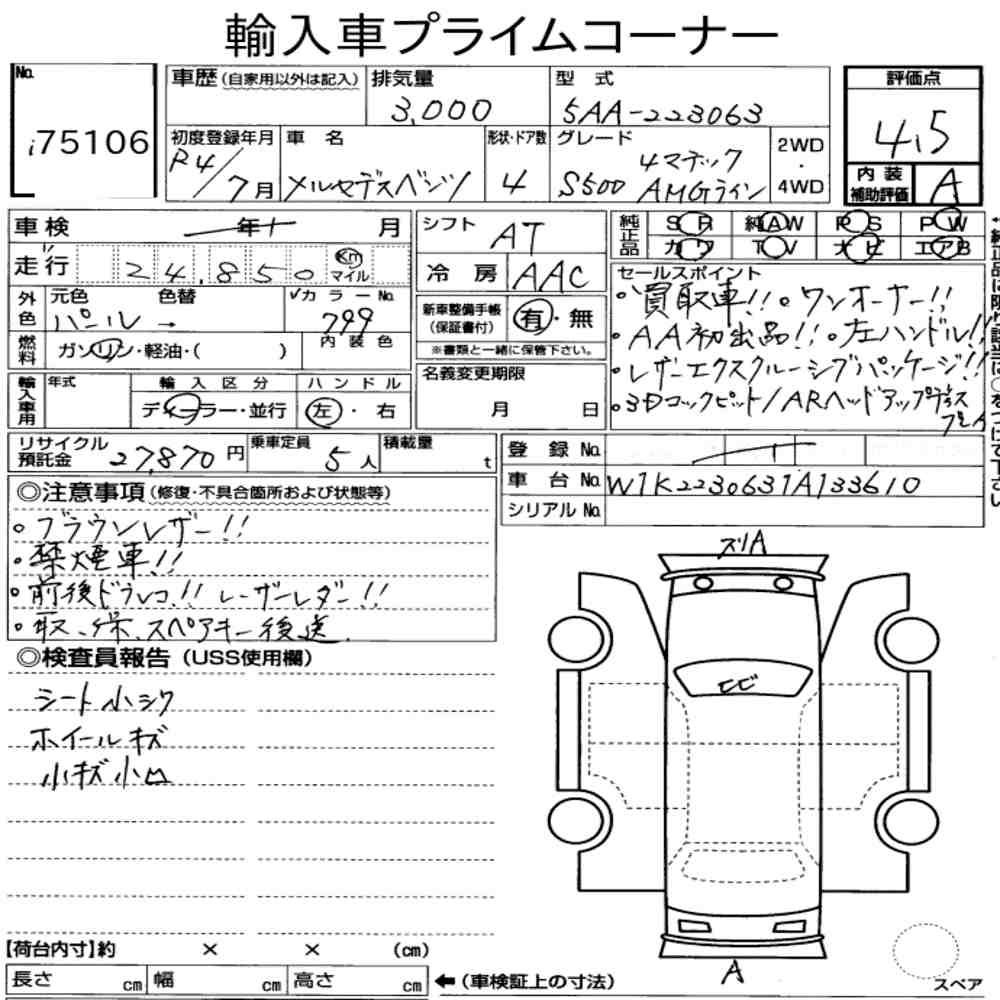 輸入車プライムコーナー
No.
i75106
車歴（自家用以外は記入）
排気量
3,000
型式
5AA-223063
評価点
4.5
内装補助評価
A
初度登録年月
R4/7月
車名
メルセデスベンツ
形状・ドア数
4
グレード
4マチック
S500 AMGライン
2WD
・
4WD
車検
年 月
走行
24,850
Km
マイル
シフト
AT
冷房
AAC
純正品
SR 純AW PS PW
カワ TV ナビ エアB
外色
元色
パール
色替
→
カラーNo.
799
内装色
燃料
ガソリン・軽油・( )
新車整備手帳
（保証書付）
有・無
※書類と一緒に保管下さい。
セールスポイント
・買取車!!・ワンオーナー!!
・AA初出品!!・左ハンドル!!
・レザーエクスクルーシブパッケージ!!
・3Dコックピット/ARヘッドアッププラス
輸入車用
年式
輸入区分
ディーラー・並行
ハンドル
左・右
名義変更期限
月 日
リサイクル預託金
27,870円
乗車定員
5人
積載量
t
登録No.
車台No.
W1K2230631A133610
シリアルNo.
◎注意事項（修復・不具合箇所および状態等）
・ブラウンレザー!!
・禁煙車!!
・前後ドラレコ!! レーザーレダー!!
・取、保、スペアキー後送
◎検査員報告（USS使用欄）
シート小シワ
ホイールキズ
小キズ小凹
ズリA
ヒビ
A
【荷台内寸】約 × × （cm）
長さ cm 幅 cm 高さ cm
←（車検証上の寸法）
スペア